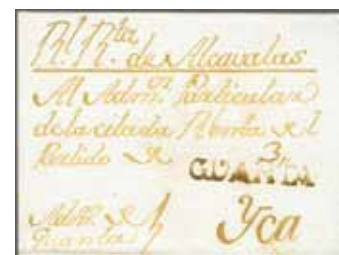 Rl. Rta. de Alcavalas
Al Admor. Particular
de la citada Rl. Renta del
Partido de
3
GUANTA
Admr. del
Guanta Yca